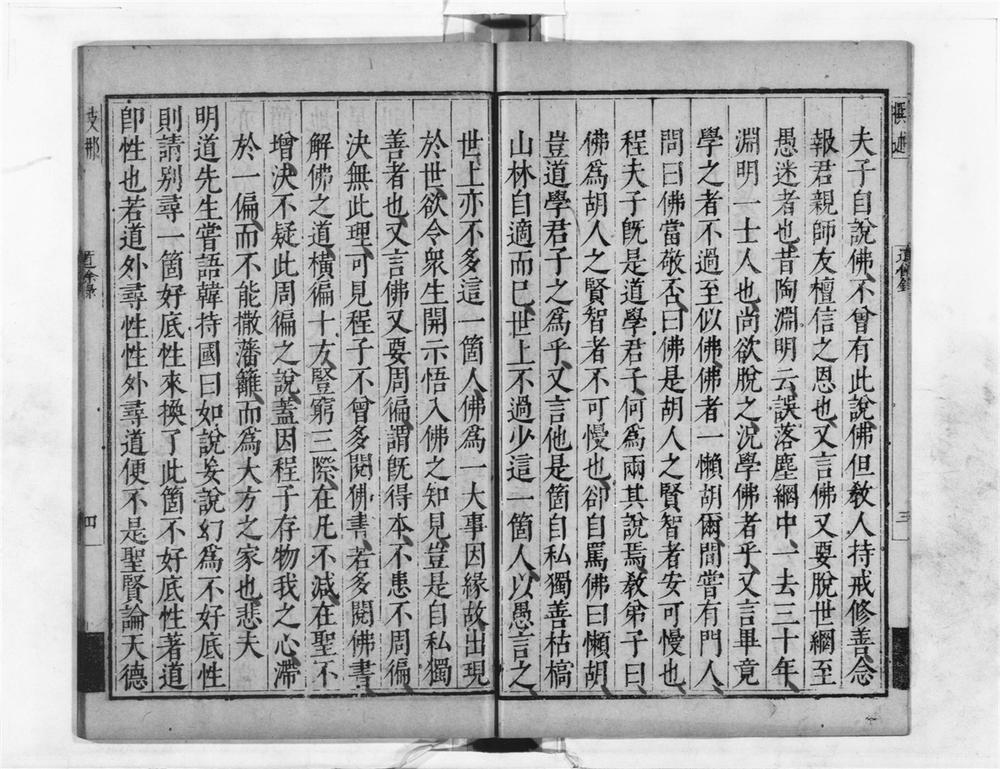 撰述
道餘錄
三
夫子自說佛、不曾有此說、佛但教人持戒修善、念
報君親師友檀信之恩也、又言佛又要脫世網至
愚迷者也、昔陶淵明云、誤落塵網中、一去三十年、
淵明一士人也、尚欲脫之、況學佛者乎、又言畢竟
學之者不過至似佛、佛者一懶胡爾、閒嘗有門人、
問曰佛當敬否、曰佛是胡人之賢智者安可慢也
程夫子旣是道學君子、何爲兩其說焉、敎弟子曰、
佛爲胡人之賢智者不可慢也、卻自罵佛曰懶胡、
豈道學君子之爲乎、又言他是箇自私獨善枯槁
山林自適而已、世上不過少這一箇人、以愚言之
世上亦不多這一箇人、佛爲一大事因緣故出現
於世、欲令衆生開示悟入佛之知見、豈是自私獨
善者也、又言佛又要周徧、謂旣得本、不患不周徧、
決無此理、可見程子不曾多閱佛書、若多閱佛書、
解佛之道、橫徧十方、豎窮三際、在凡不減、在聖不
增、決不疑此周徧之說、蓋因程子存物我之心、滯
於一偏、而不能撒藩籬、而爲大方之家也、悲夫
明道先生嘗語韓持國曰如說妄說幻爲不好底性
則請别尋一箇好底性來換了此箇不好底性著道
卽性也若道外尋性性外尋道便不是聖賢論天德
支那
道餘錄
四